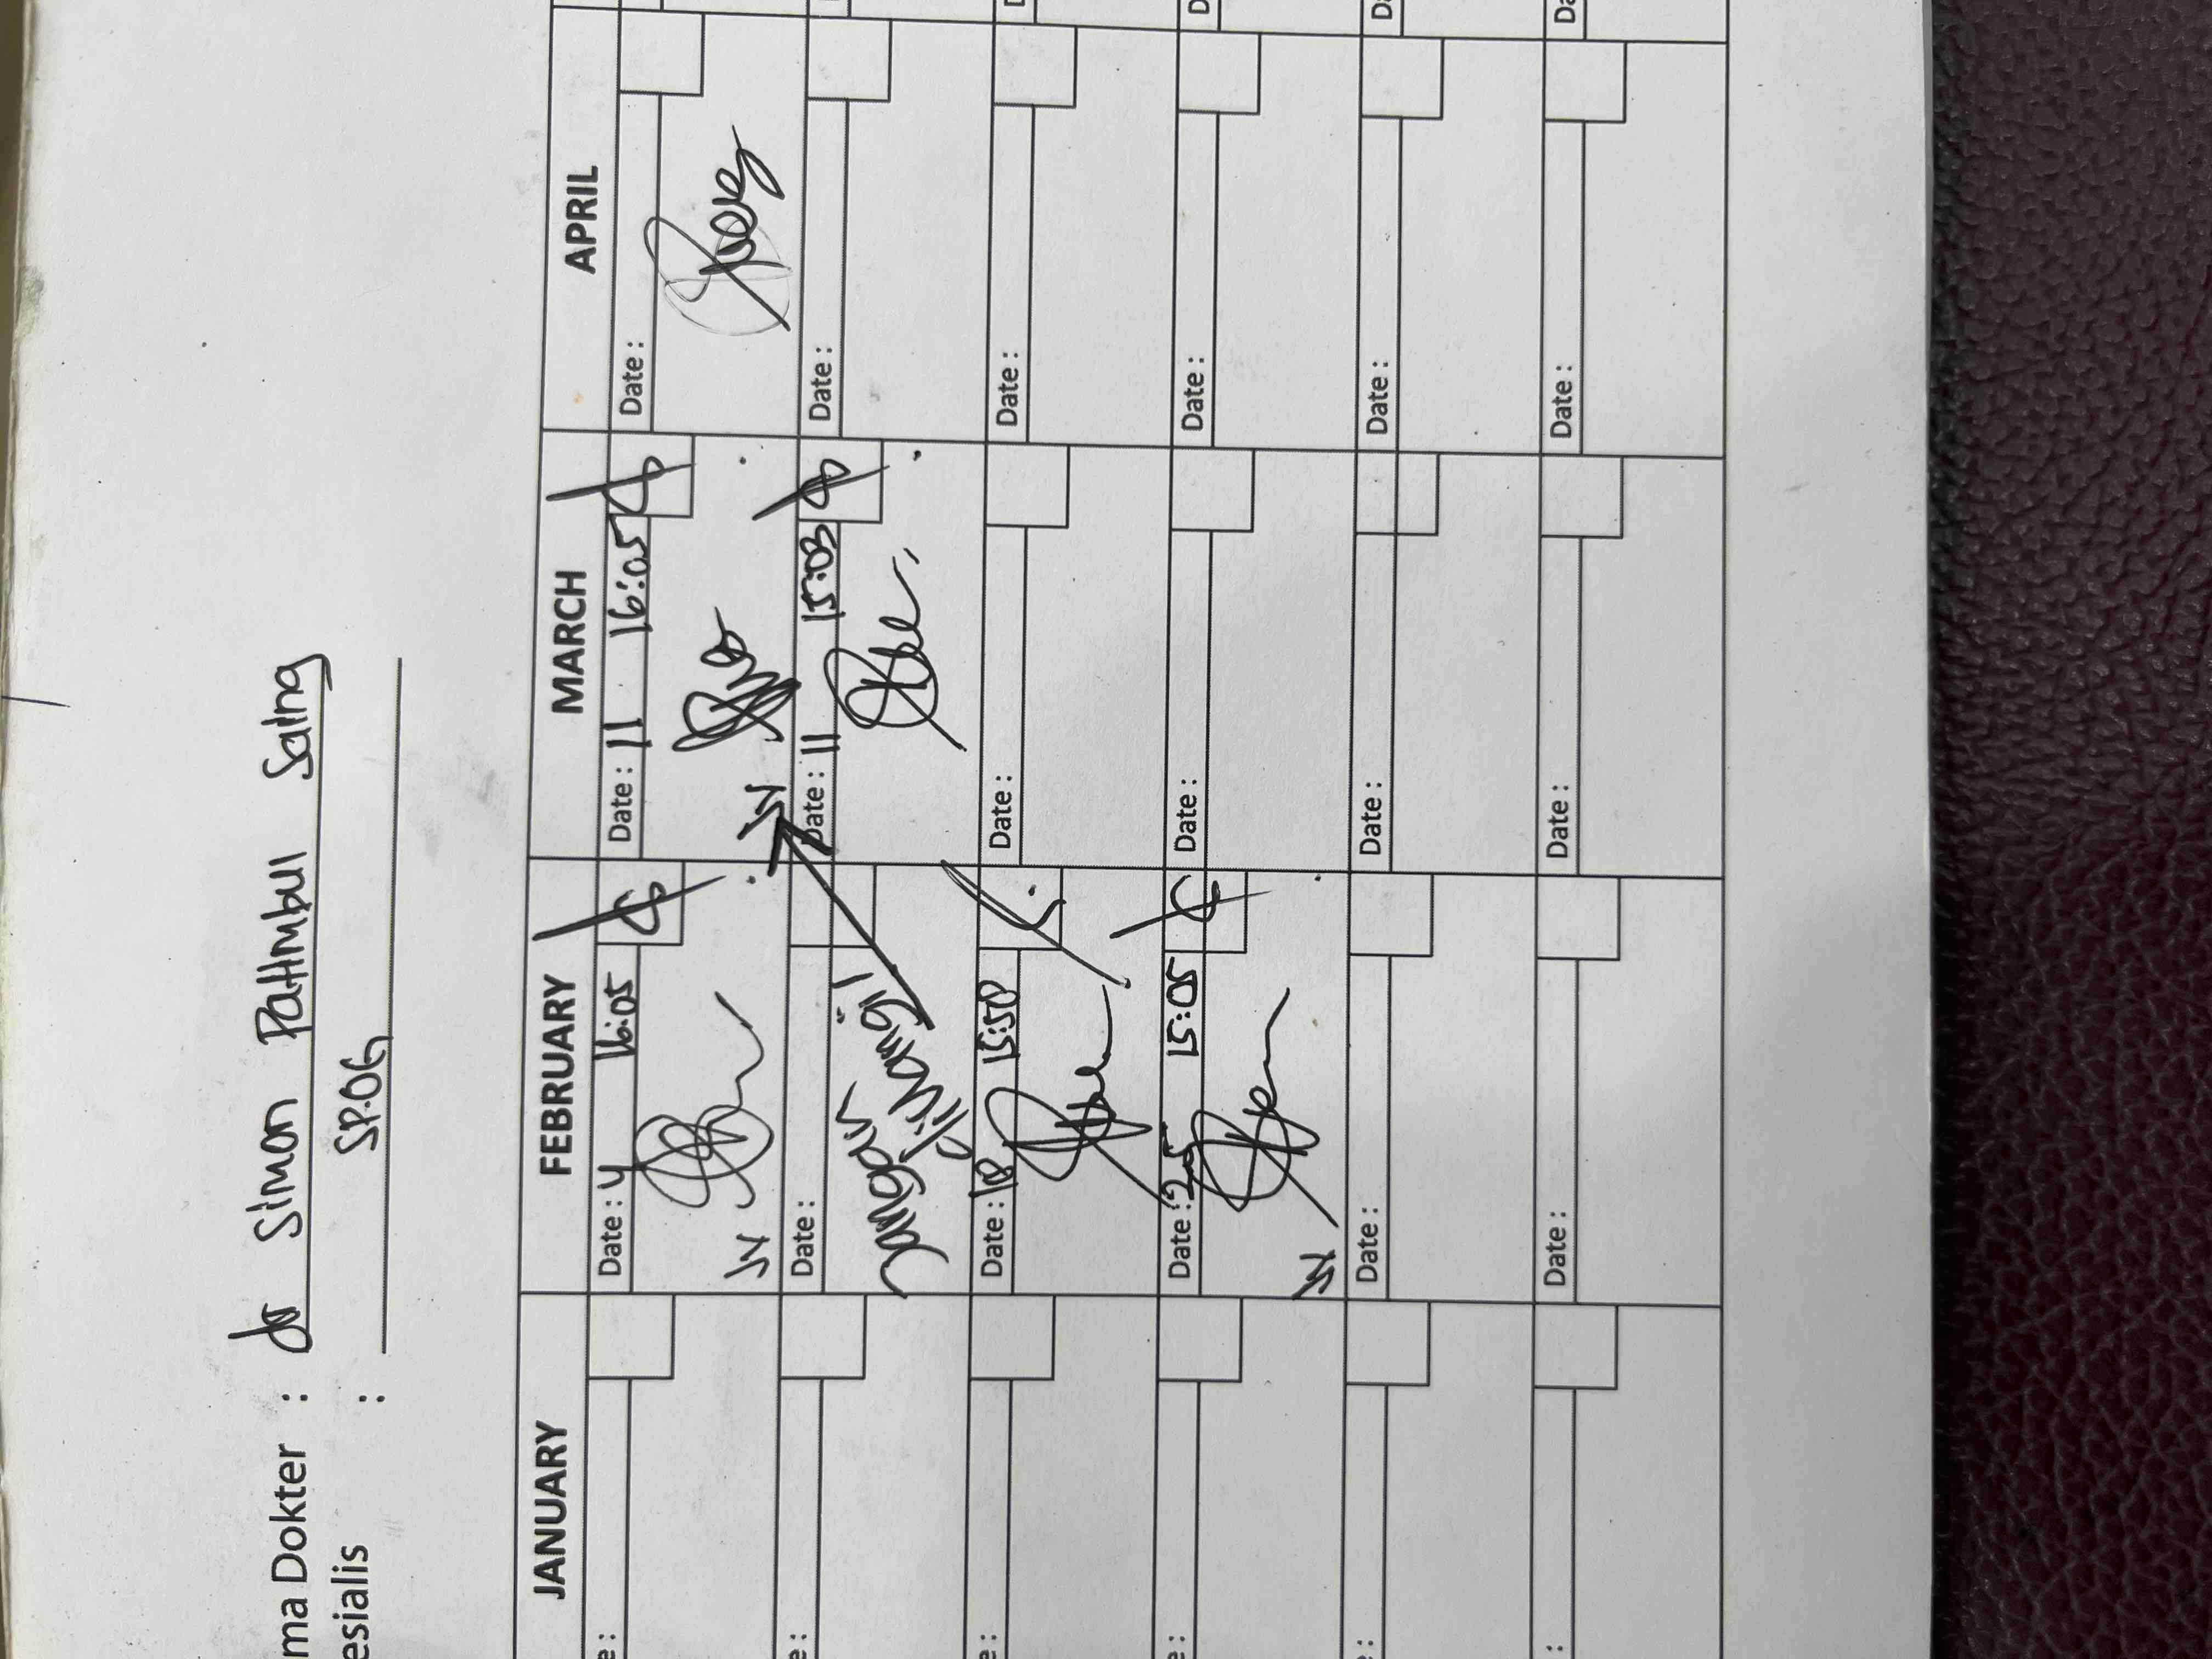 ma Dokter : dr Simon Pattmbul Saing
esialis : SP.OG
JANUARY FEBRUARY MARCH APRIL
e : Date : 4 16:05 Date : 11 16:05 Date : D
e : Date : Date : 11 15:03 Date : D
Jangan
diulangi!
e : Date : 18 15:50 Date : Date : D
e : Date : 25 15:05 Date : Date : D
: Date : Date : Date : Da
: Date : Date : Date : Da